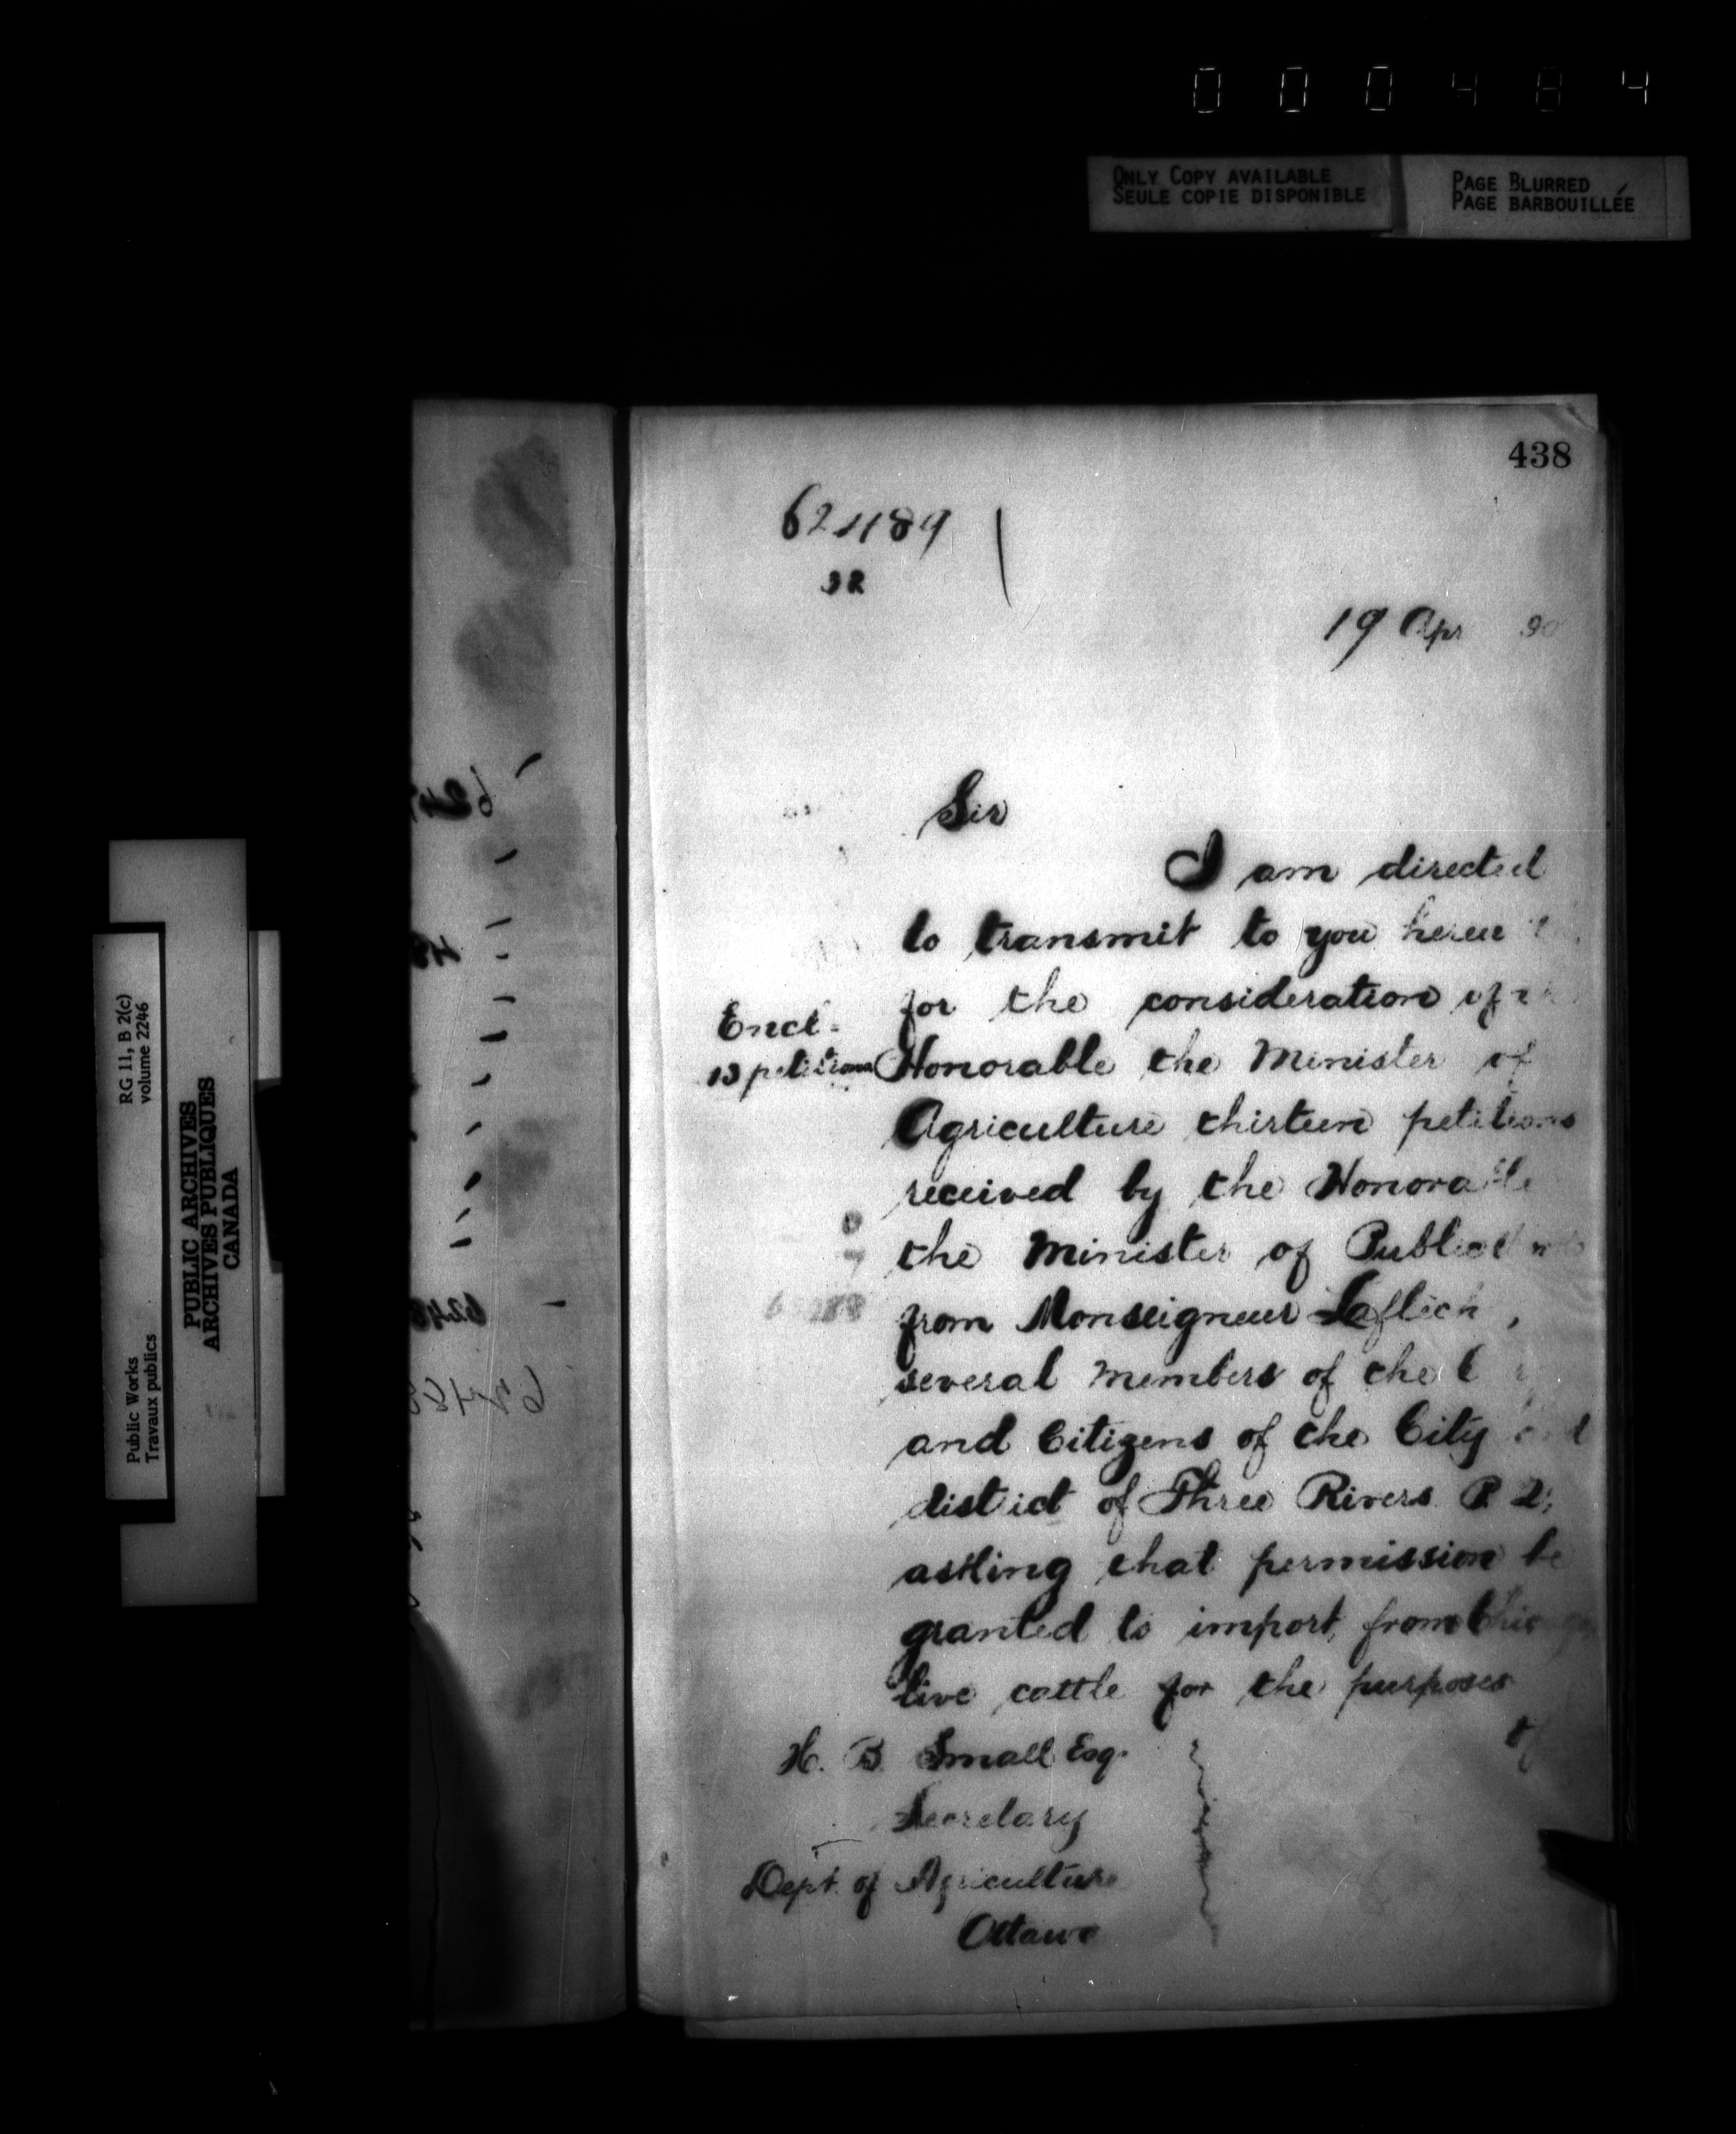 000484
ONLY COPY AVAILABLE
SEULE COPIE DISPONIBLE
PAGE BLURRED
PAGE BARBOUILLÉE
RG 11, B 2(c)
volume 2246
PUBLIC ARCHIVES
ARCHIVES PUBLIQUES
CANADA
Public Works
Travaux publics
438
62489
19 Apr 90
Sir
I am directed
to transmit to you
for the consideration of
Encl.
13 petitions
Honorable the Minister of
Agriculture thirteen petitions
received by the Honorable
the Minister of Public
from Monseigneur Laflech,
several members of the
and Citizens of the City
district of Three Rivers P Q;
asking that permission be
granted to import from
live cattle for the purposes
of
H. B. Small Esq.
Secretary
Dept. of Agriculture
Ottawa